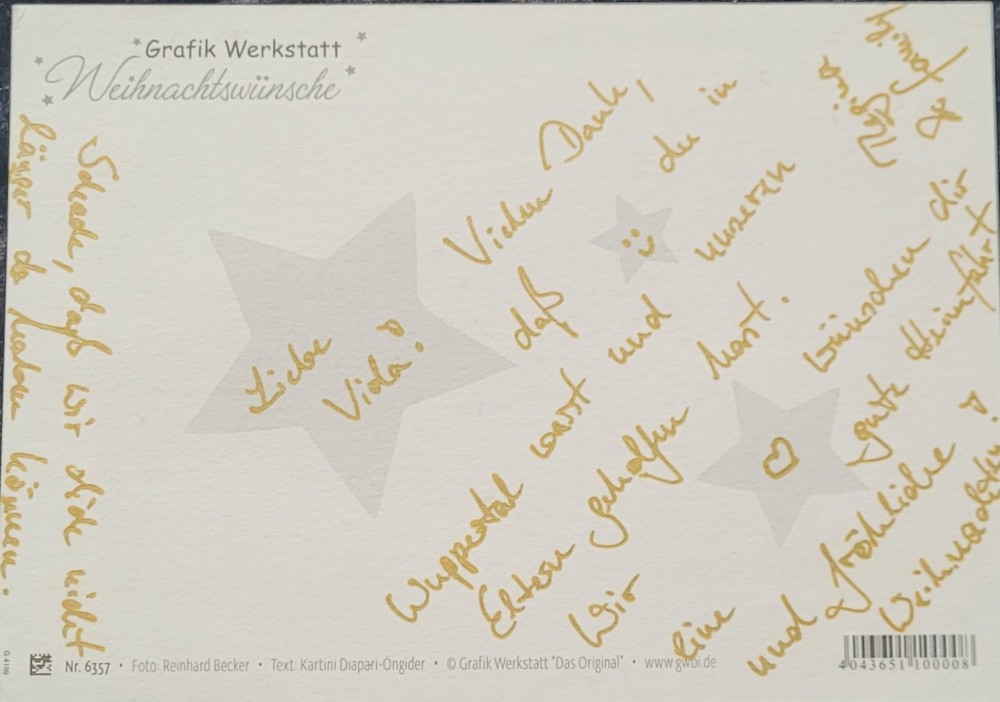 Grafik Werkstatt
Weihnachtswünsche
Liebe
Vida!
Vielen Dank,
daß du in
Wuppertal warst und unseren
Eltern geholfen hast.
Wir wünschen dir
eine gute Heimfahrt
und fröhliche
Weihnachten!
Schade, daß wir dich nicht
länger da haben können.
Nr. 6357 • Foto: Reinhard Becker • Text: Kartini Diapari-Öngider • © Grafik Werkstatt "Das Original" • www.gwbi.de
4 043651 100008
G 4199